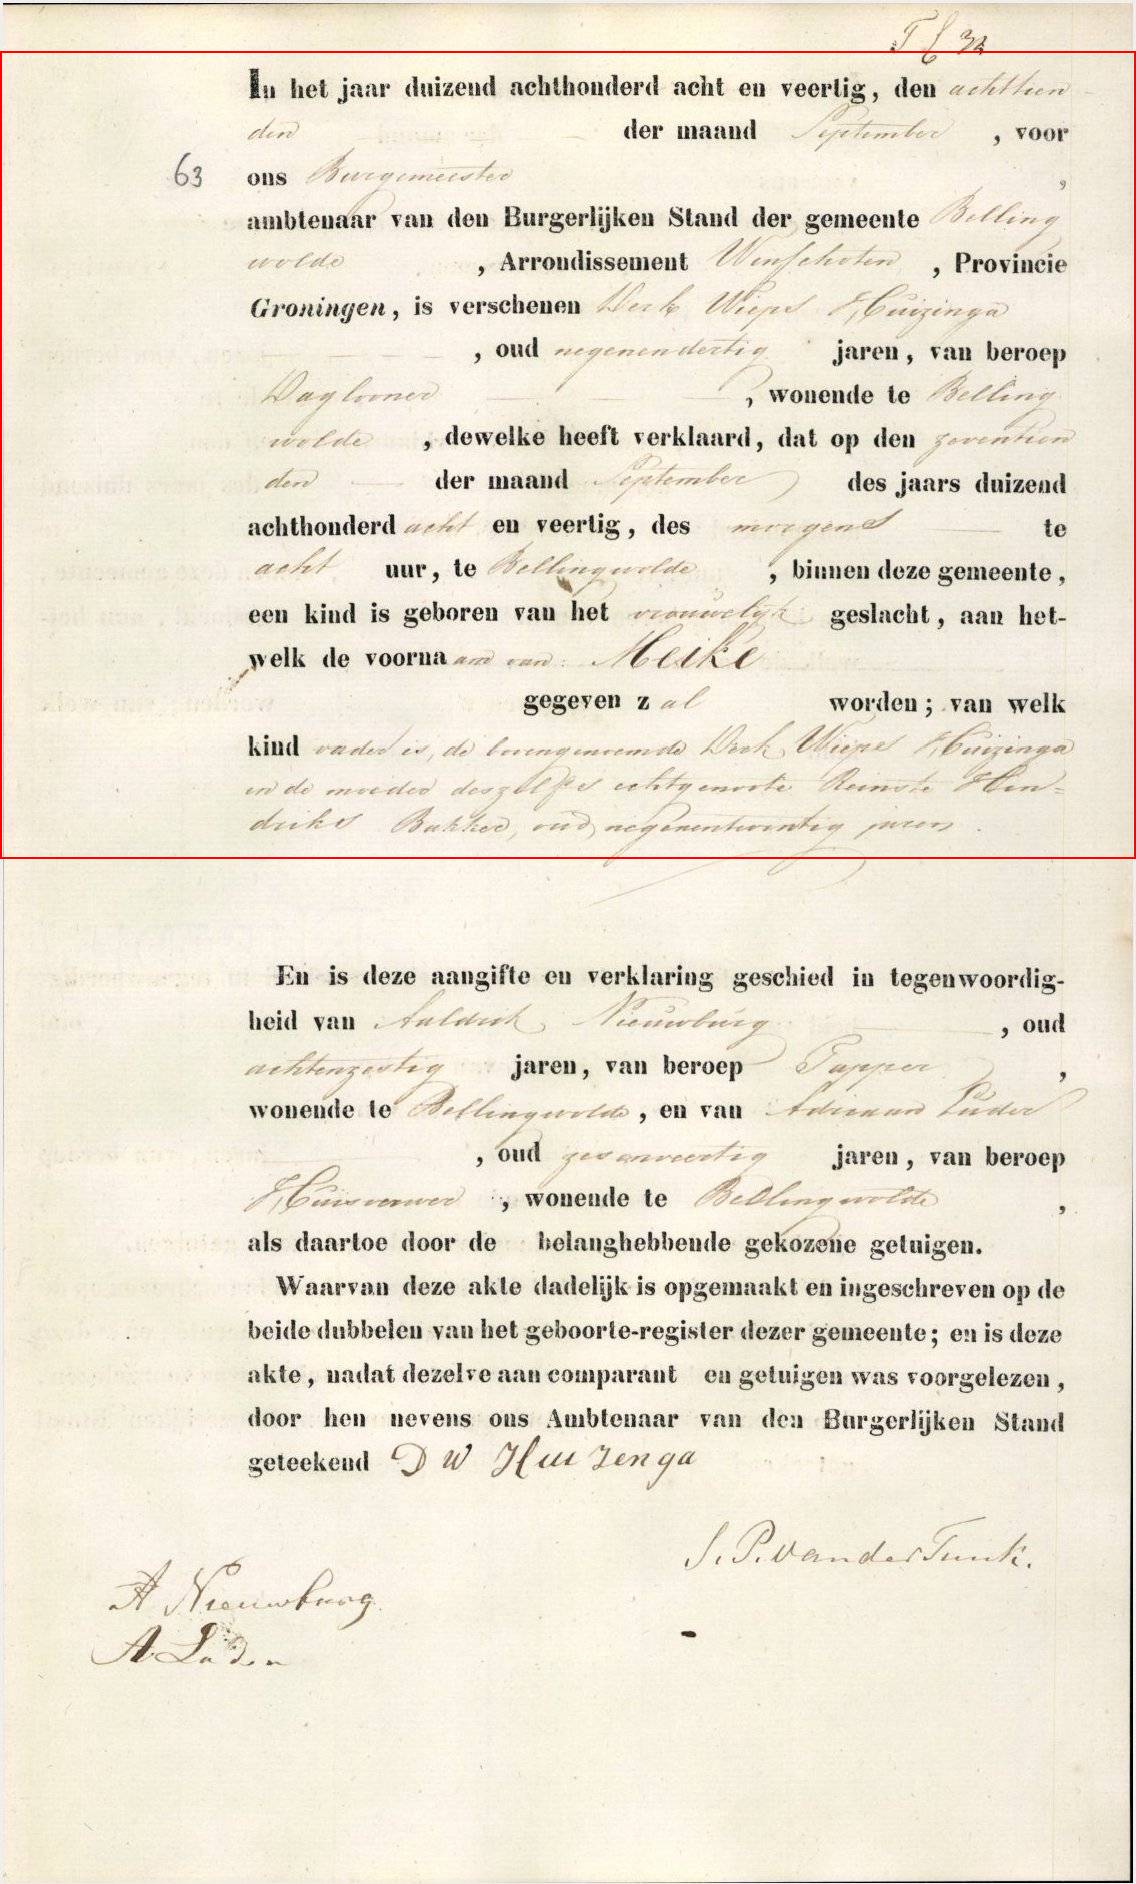 In het jaar duizend achthonderd acht en veertig, den achttien
den der maand September, voor
63 ons Burgemeester,
ambtenaar van den Burgerlijken Stand der gemeente Belling
wolde, Arrondissement Winschoten, Provincie
Groningen, is verschenen Derk Wieps Huizinga
, oud negenendertig jaren, van beroep
Daglooner, wonende te Belling
wolde, dewelke heeft verklaard, dat op den zeventien
den der maand September des jaars duizend
achthonderd acht en veertig, des morgens te
acht uur, te Bellingwolde, binnen deze gemeente,
een kind is geboren van het vrouwelijk geslacht, aan het-
welk de voornaam van Meike
gegeven zal worden; van welk
kind vader is, de bovengenoemde Derk Wieps Huizinga
en de moeder deszelfs echtgenoote Hin-
driks Bakker, oud negenentwintig jaren.
En is deze aangifte en verklaring geschied in tegenwoordig-
heid van Nieuwburg, oud
achtenzestig jaren, van beroep Tapper,
wonende te Bellingwolde, en van Adriaan Luder
, oud zesenveertig jaren, van beroep
Huisverwer, wonende te Bellingwolde,
als daartoe door de belanghebbende gekozene getuigen.
Waarvan deze akte dadelijk is opgemaakt en ingeschreven op de
beide dubbelen van het geboorte-register dezer gemeente; en is deze
akte, nadat dezelve aan comparant en getuigen was voorgelezen,
door hen nevens ons Ambtenaar van den Burgerlijken Stand
geteekend D W Huizenga
S. P. van der Tuuk.
A Nieuwburg
A Luden